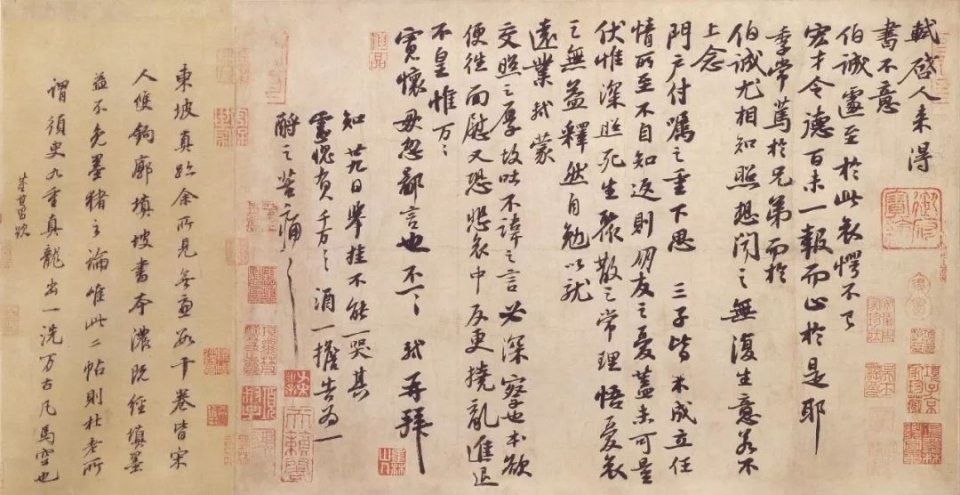 軾啓人來得
書不意
伯誠遽至於此哀愕不已
宏才令德百未一報而止於是耶
季常篤於兄弟而於
伯誠尤相知照想聞之無復生意若不
上念
門户付囑之重下思三子皆未成立任
情所至不自知返則朋友之憂蓋未可量
伏惟深照死生聚散之常理悟憂哀
之無益釋然自勉以就
遠業軾蒙
交照之厚故吐不諱之言必深察也本欲
便往面慰又恐悲哀中反更撓亂進退
不皇惟万万
寛懷毋忽鄙言也不一一軾再拜
知廿九日舉挂不能一哭其
靈愧負千万千万酒一擔告為一
酹之苦痛苦痛
東坡真跡余所見無慮數十卷皆宋
人雙鉤廓填坡書本濃既經填墨
益不免墨豬之論唯此二帖則杜老所
謂須臾九重真龍出一洗万古凡馬空也
董其昌題